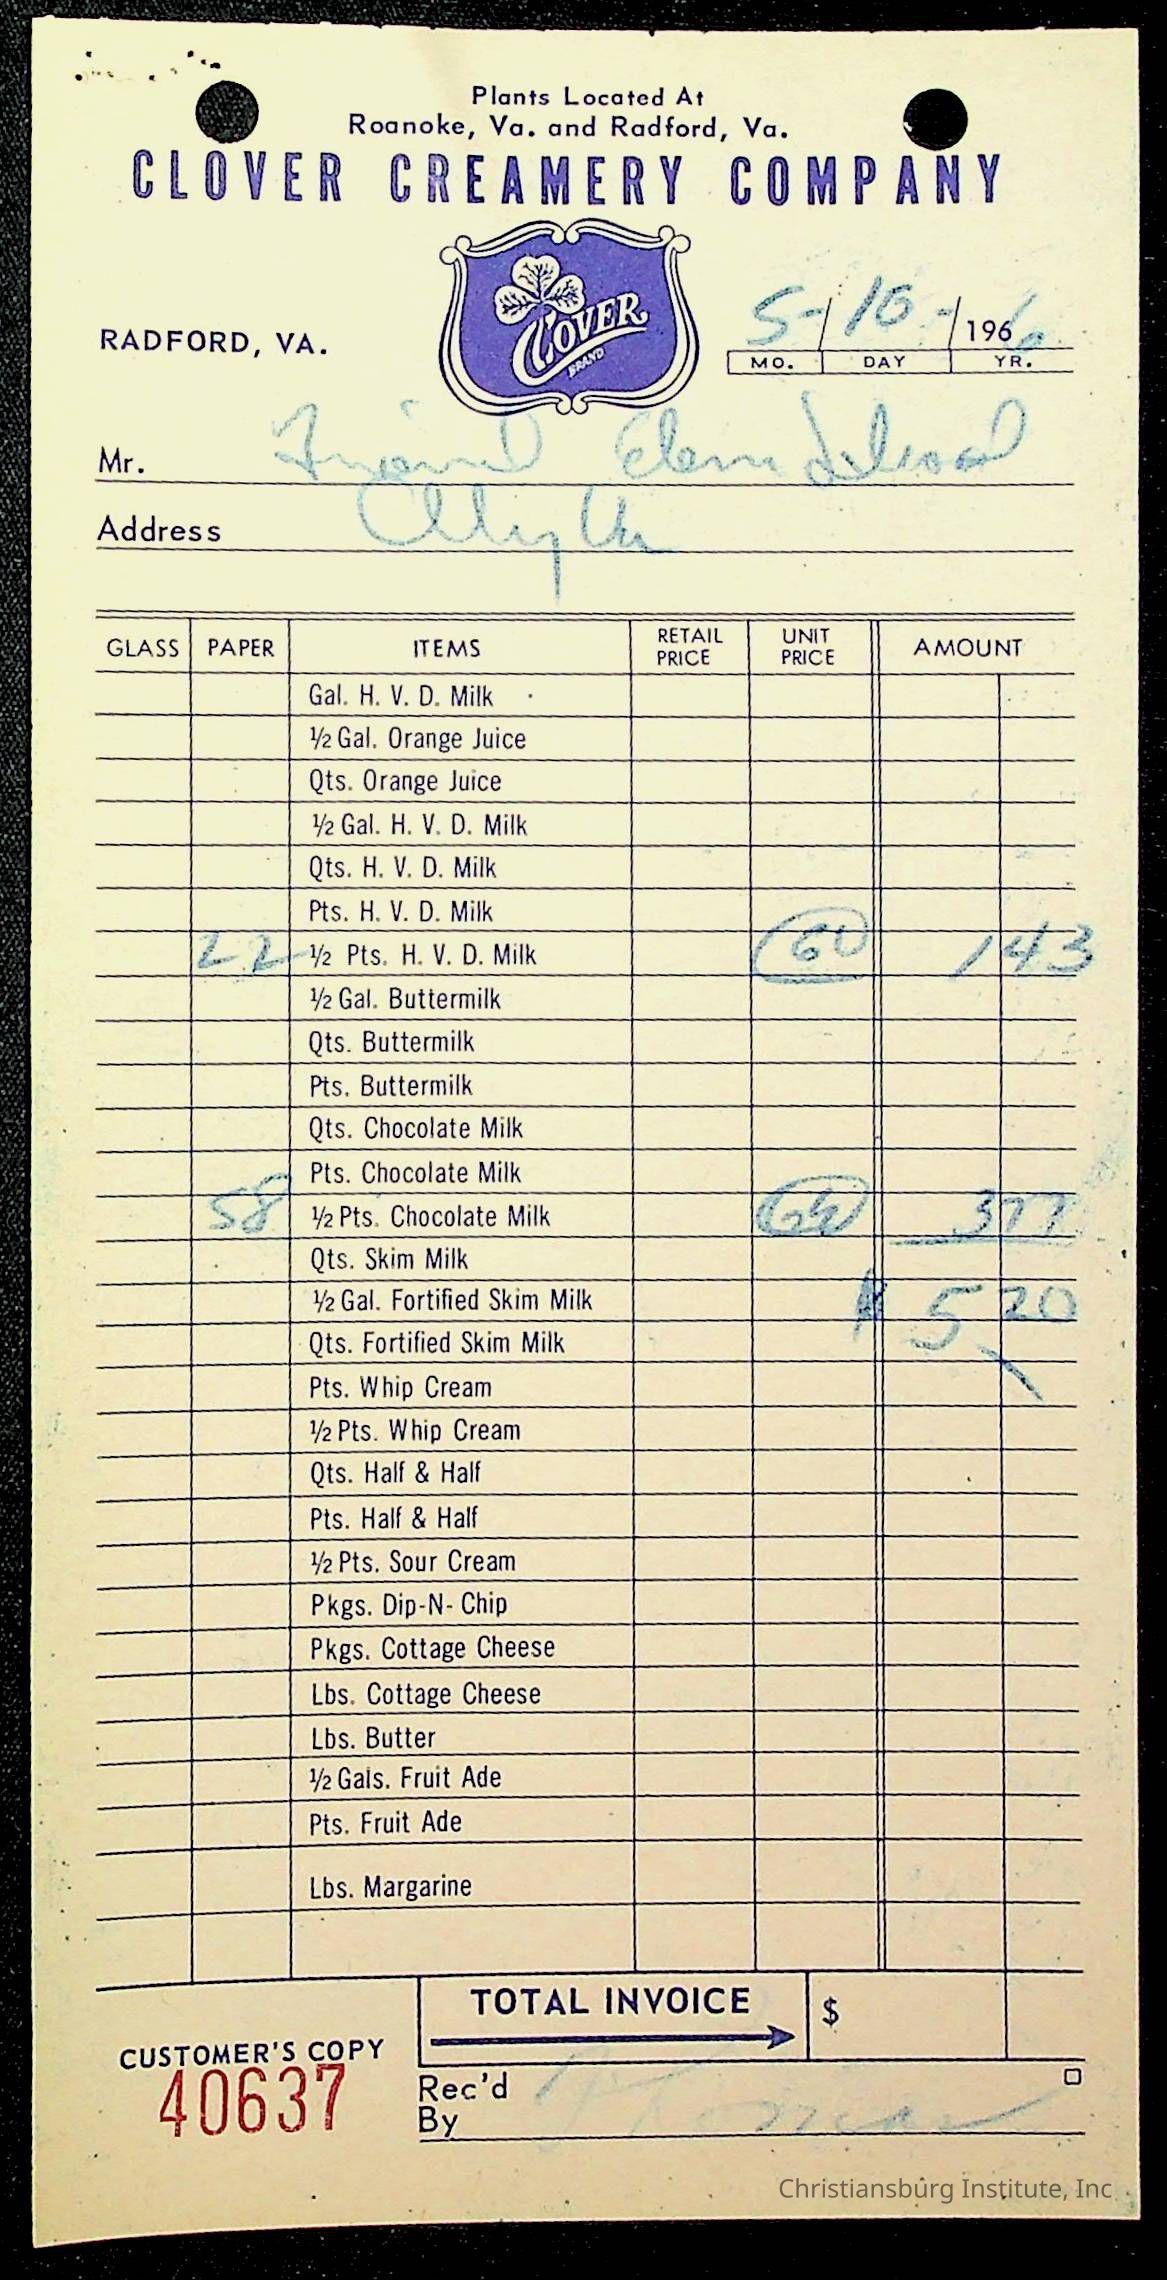 Plants Located At
Roanoke, Va. and Radford, Va.
CLOVER CREAMERY COMPANY
CLOVER
BRAND
RADFORD, VA.
5-/10-/1966
MO. DAY YR.
Mr. Friend Elem School
Address
GLASS PAPER ITEMS RETAIL PRICE UNIT PRICE AMOUNT
Gal. H. V. D. Milk
½ Gal. Orange Juice
Qts. Orange Juice
½ Gal. H. V. D. Milk
Qts. H. V. D. Milk
Pts. H. V. D. Milk
22 ½ Pts. H. V. D. Milk 1 43
½ Gal. Buttermilk
Qts. Buttermilk
Pts. Buttermilk
Qts. Chocolate Milk
Pts. Chocolate Milk
58 ½ Pts. Chocolate Milk 3 77
Qts. Skim Milk
½ Gal. Fortified Skim Milk 5 20
Qts. Fortified Skim Milk
Pts. Whip Cream
½ Pts. Whip Cream
Qts. Half & Half
Pts. Half & Half
½ Pts. Sour Cream
Pkgs. Dip-N-Chip
Pkgs. Cottage Cheese
Lbs. Cottage Cheese
Lbs. Butter
½ Gals. Fruit Ade
Pts. Fruit Ade
Lbs. Margarine
TOTAL INVOICE $
CUSTOMER'S COPY
40637
Rec'd
By Thomas
Christiansburg Institute, Inc